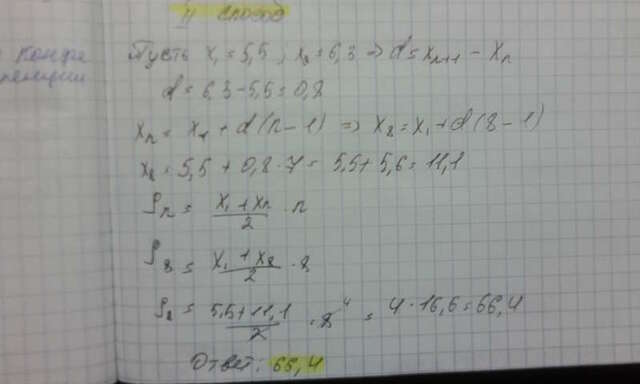 II способ
Пусть x₁ = 5,5, x₂ = 6,3 => d = xₙ₊₁ - xₙ
d = 6,3 - 5,5 = 0,8
xₙ = x₁ + d(n-1) => x₈ = x₁ + d(8-1)
x₈ = 5,5 + 0,8·7 = 5,5 + 5,6 = 11,1
Sₙ = (x₁ + xₙ)/2 · n
S₈ = (x₁ + x₈)/2 · 8
S₈ = (5,5 + 11,1)/2 · 8 ⁴ = 4·16,6 = 66,4
Ответ: 66,4